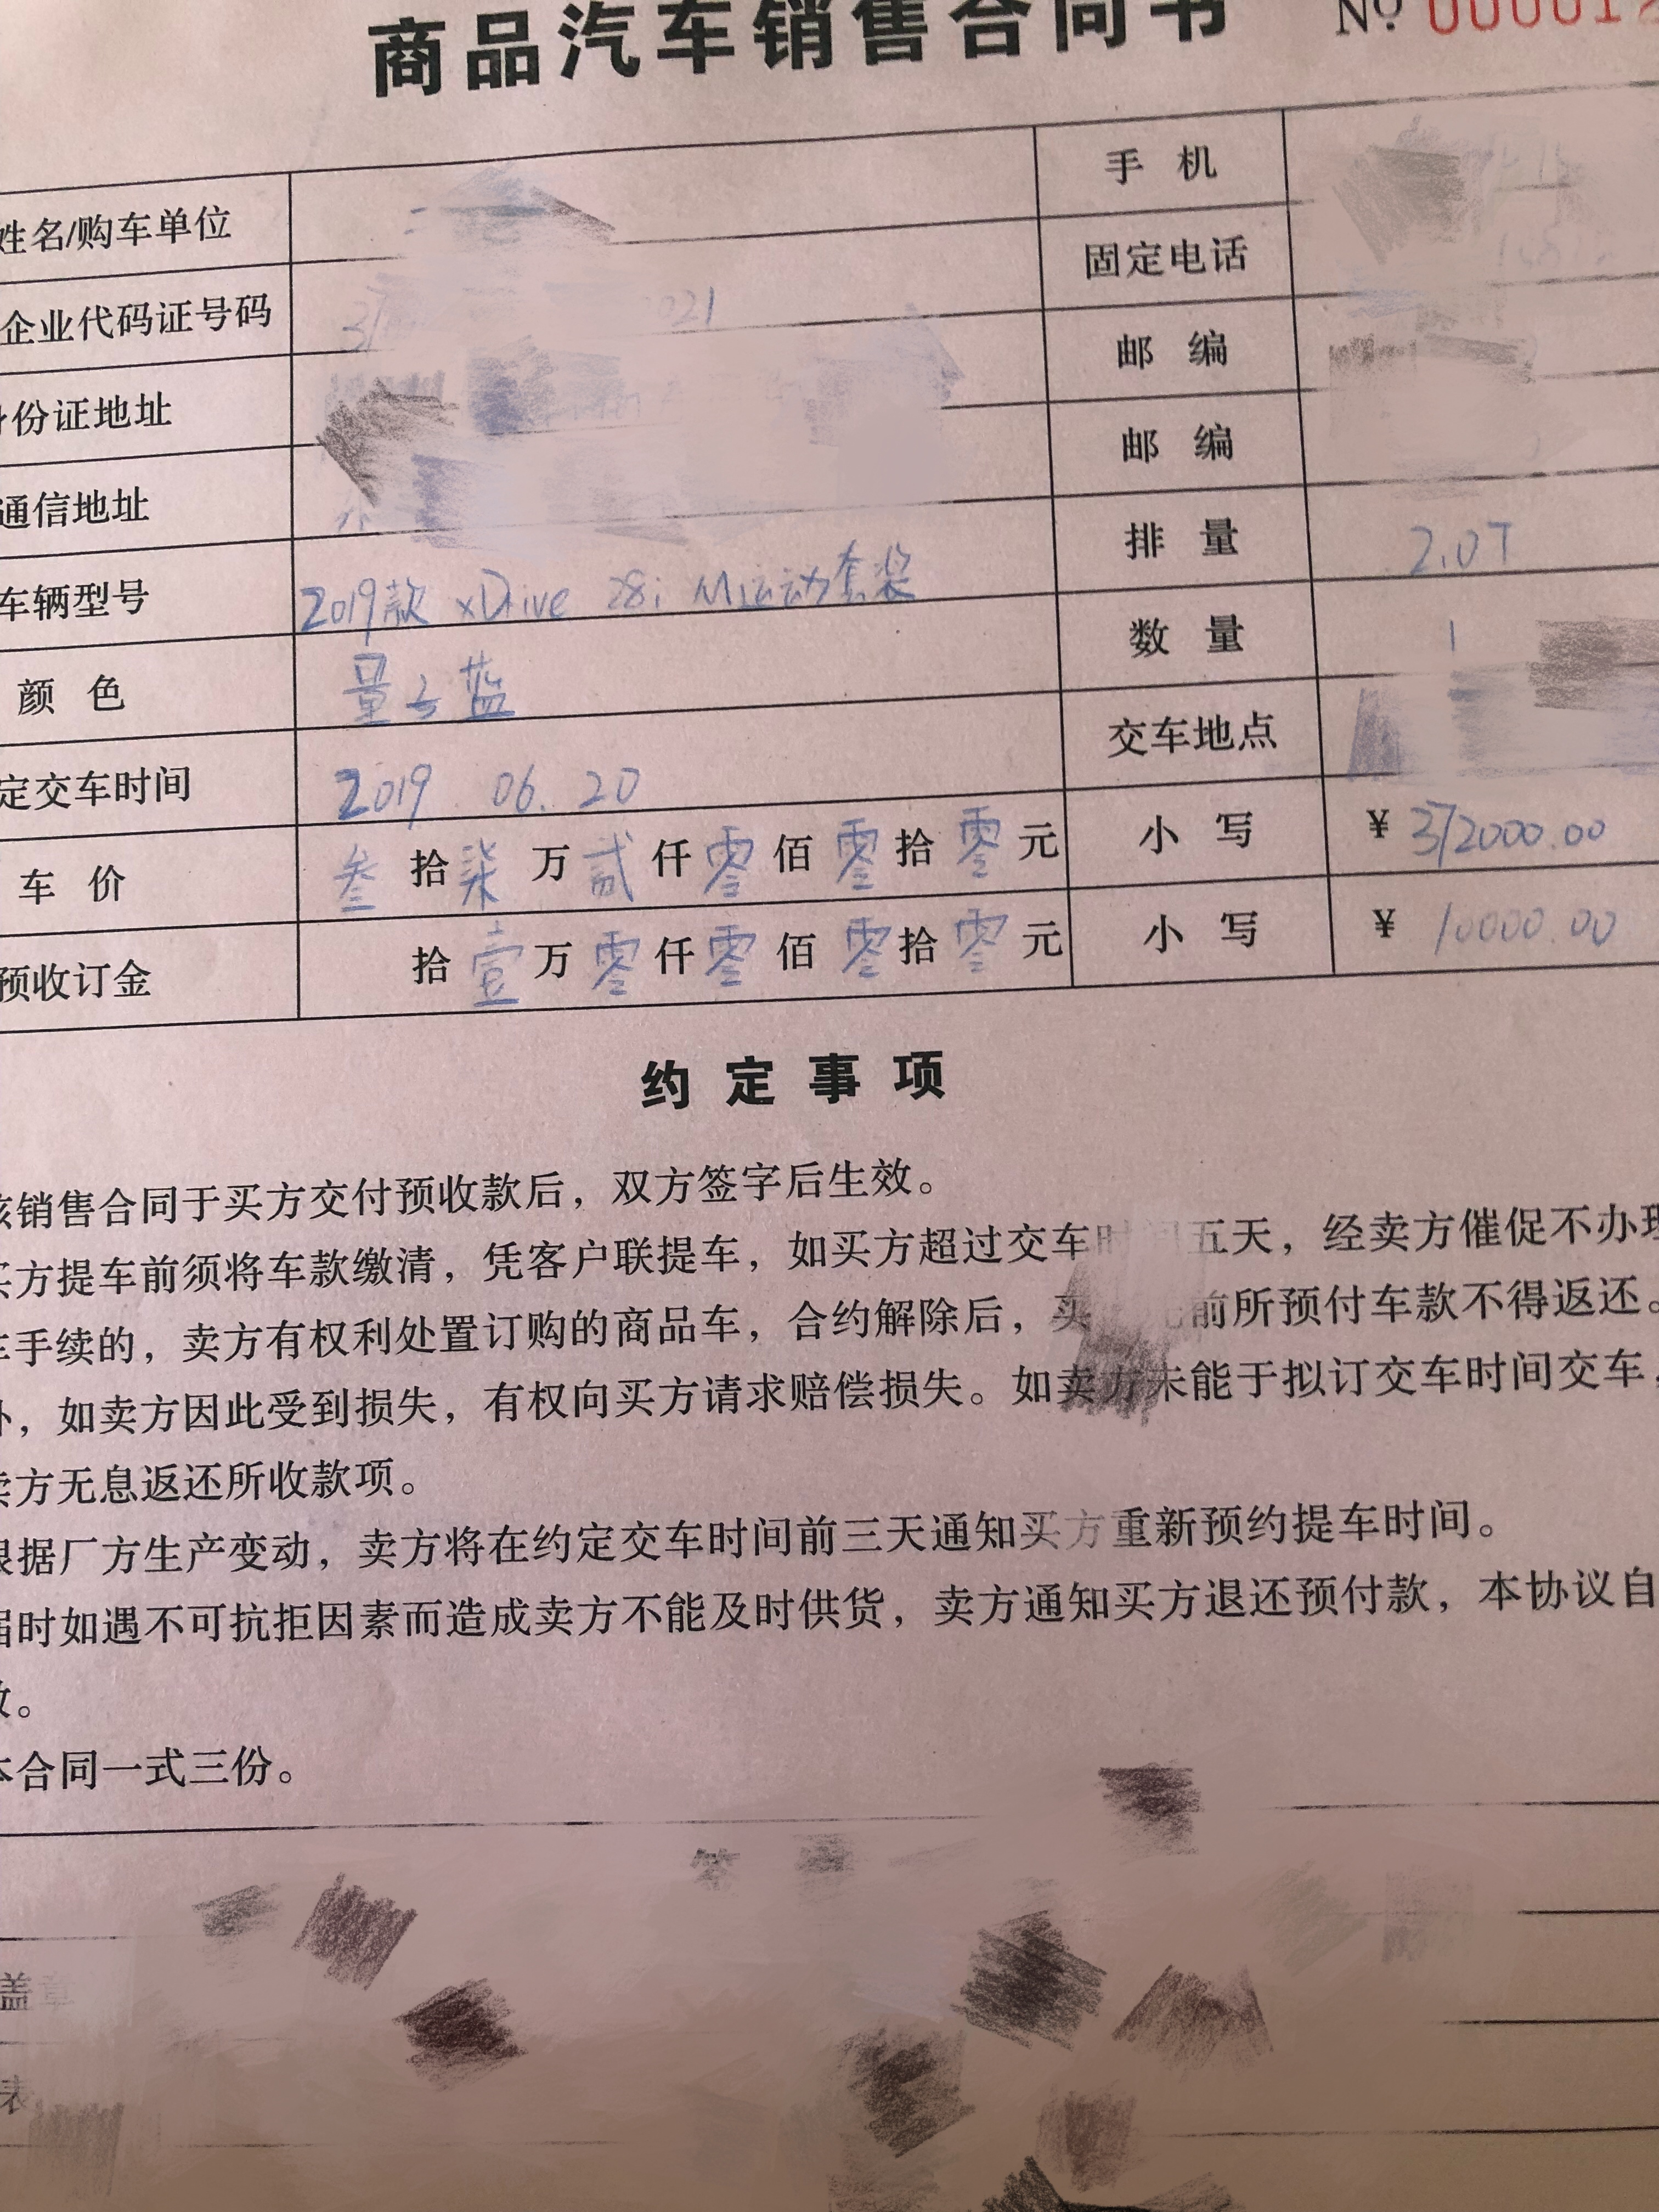 商品汽车销售合同书 № 000012
姓名/购车单位 手机
固定电话
企业代码证号码 021
份证地址 邮编
通信地址 邮编
车辆型号 2019款 xDrive 28i M运动套装 排量 2.0T
颜色 量子蓝 数量 1
定交车时间 2019.06.20 交车地点
车价 叁拾柒万贰仟零佰零拾零元 小写 ¥372000.00
预收订金 拾壹万零仟零佰零拾零元 小写 ¥10000.00
约定事项
销售合同于买方交付预收款后，双方签字后生效。
买方提车前须将车款缴清，凭客户联提车，如买方超过交车时间五天，经卖方催促不办理
手续的，卖方有权利处置订购的商品车，合约解除后，买 前所预付车款不得返还。
，如卖方因此受到损失，有权向买方请求赔偿损失。如卖方未能于拟订交车时间交车，
卖方无息返还所收款项。
根据厂方生产变动，卖方将在约定交车时间前三天通知买方重新预约提车时间。
届时如遇不可抗拒因素而造成卖方不能及时供货，卖方通知买方退还预付款，本协议自
。
本合同一式三份。
盖章
表